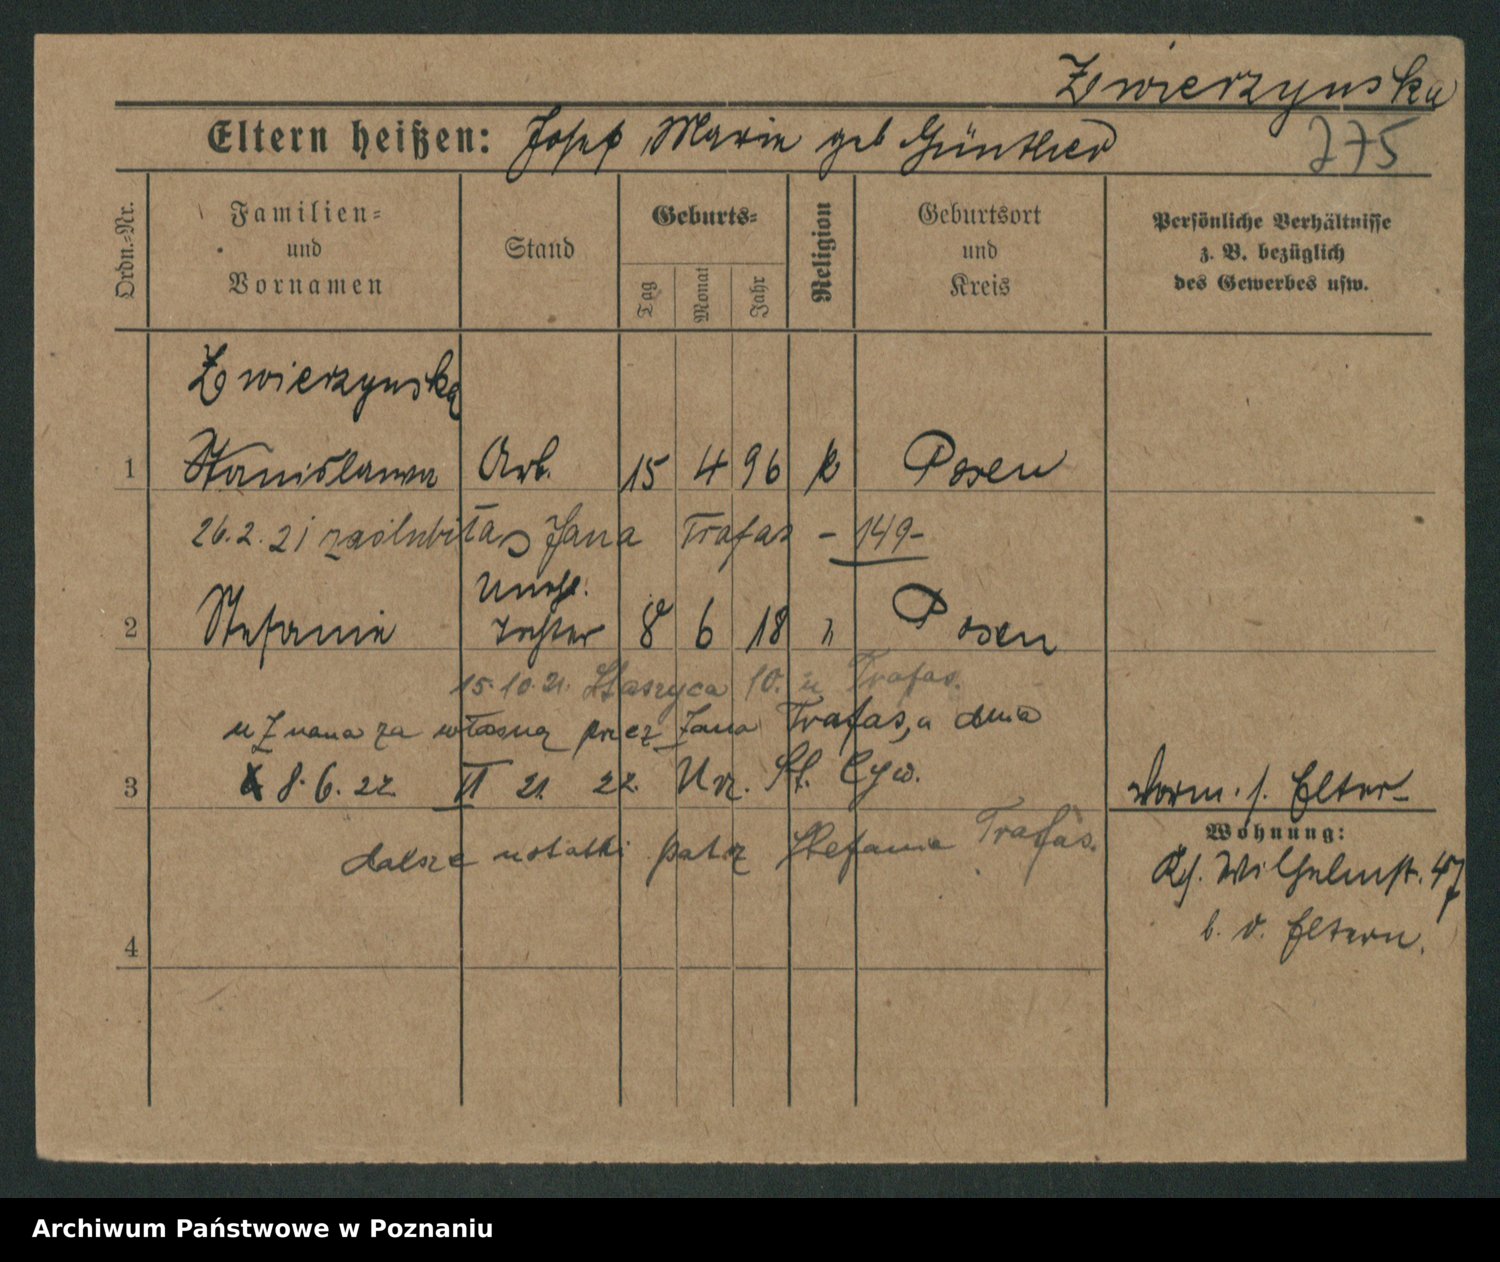 Zwierzynska
Eltern heißen: Josef Marie geb Günther
275
Ordn.-Nr.
Familien-
und
Vornamen
Stand
Geburts-
Tag
Monat
Jahr
Religion
Geburtsort
und
Kreis
Persönliche Verhältnisse
z. B. bezüglich
des Gewerbes usw.
Zwierzynska
1 Stanislawa Arb. 15 4 96 k Posen
26.2.21 zaślubiła Jana Trafas - 149-
unehl.
2 Stefanie Tochter 8 6 18 " Posen
15.10.21. Staszyca 10. u Trafas.
uznana za własną przez Jana Trafas, a dnia
3 8.6.22 VI 21 22. Urz. St. Cyw.
Vorm. s. Elter-
Wohnung:
dalsze notatki patrz Stefania Trafas.
Ks. Wilhelmst. 47
b. d. Eltern.
4
Archiwum Państwowe w Poznaniu